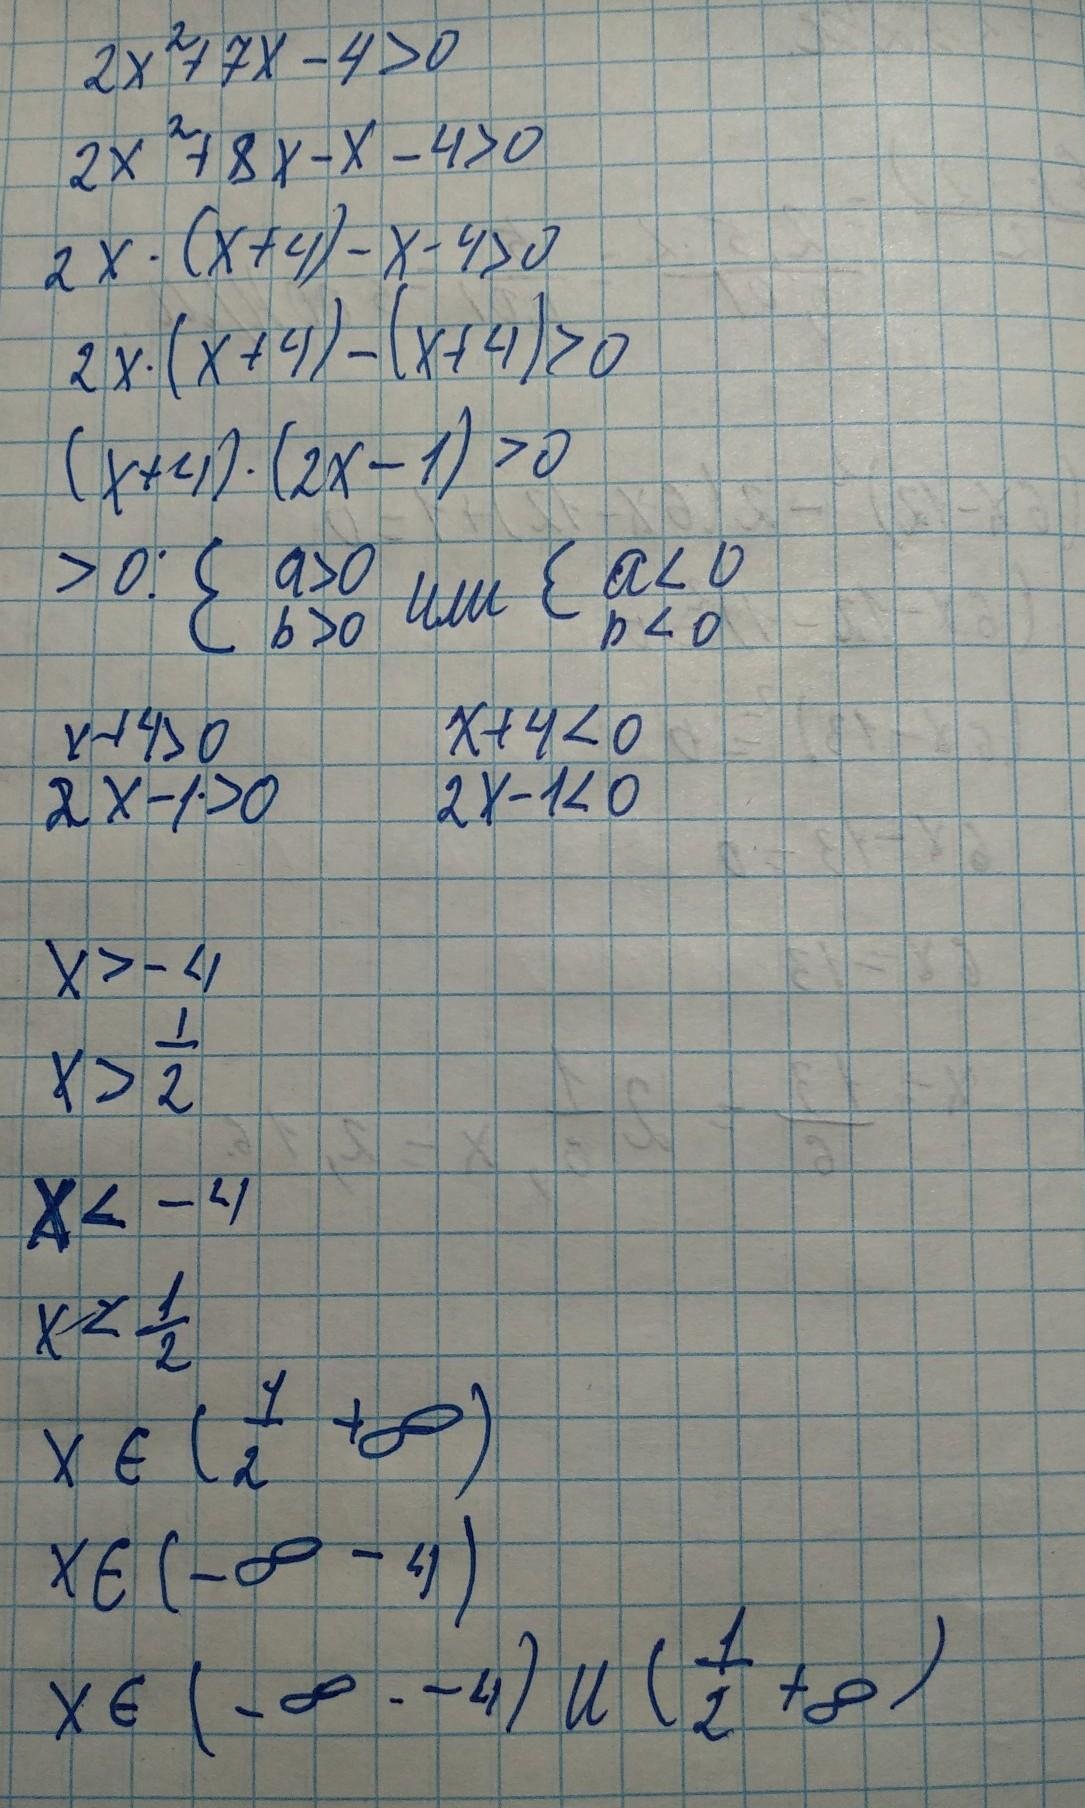 2x²+7x-4>0
2x²+8x-x-4>0
2x·(x+4)-x-4>0
2x·(x+4)-(x+4)>0
(x+4)·(2x-1)>0
>0: { a>0 b>0 или { a<0 b<0
x+4>0 x+4<0
2x-1>0 2x-1<0
x>-4
x>1/2
x<-4
x<1/2
x∈(1/2 +∞)
x∈(-∞ -4)
x∈(-∞ - -4) и (1/2 +∞)